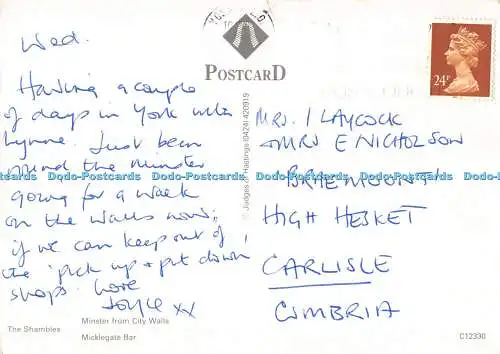 Wed.
Having a couple
of days in York with
Lynne. Just been
round the minster
going for a walk
on the walls now;
if we can keep out of
the 'pick up & put down'
shops. Love
Joyce xx
The Shambles
Minster from City Walls
Micklegate Bar
POSTCARD
© Judges of Hastings (0424) 420919
24P
MRS. I LAYCOCK
& MRS E NICHOLSON
BRAEMOUNT
HIGH HESKET
CARLISLE
CUMBRIA
C12330
Dodo-Postcards Dodo-Postcards Dodo-Postcards Dodo-Postcards Dodo-Postcards